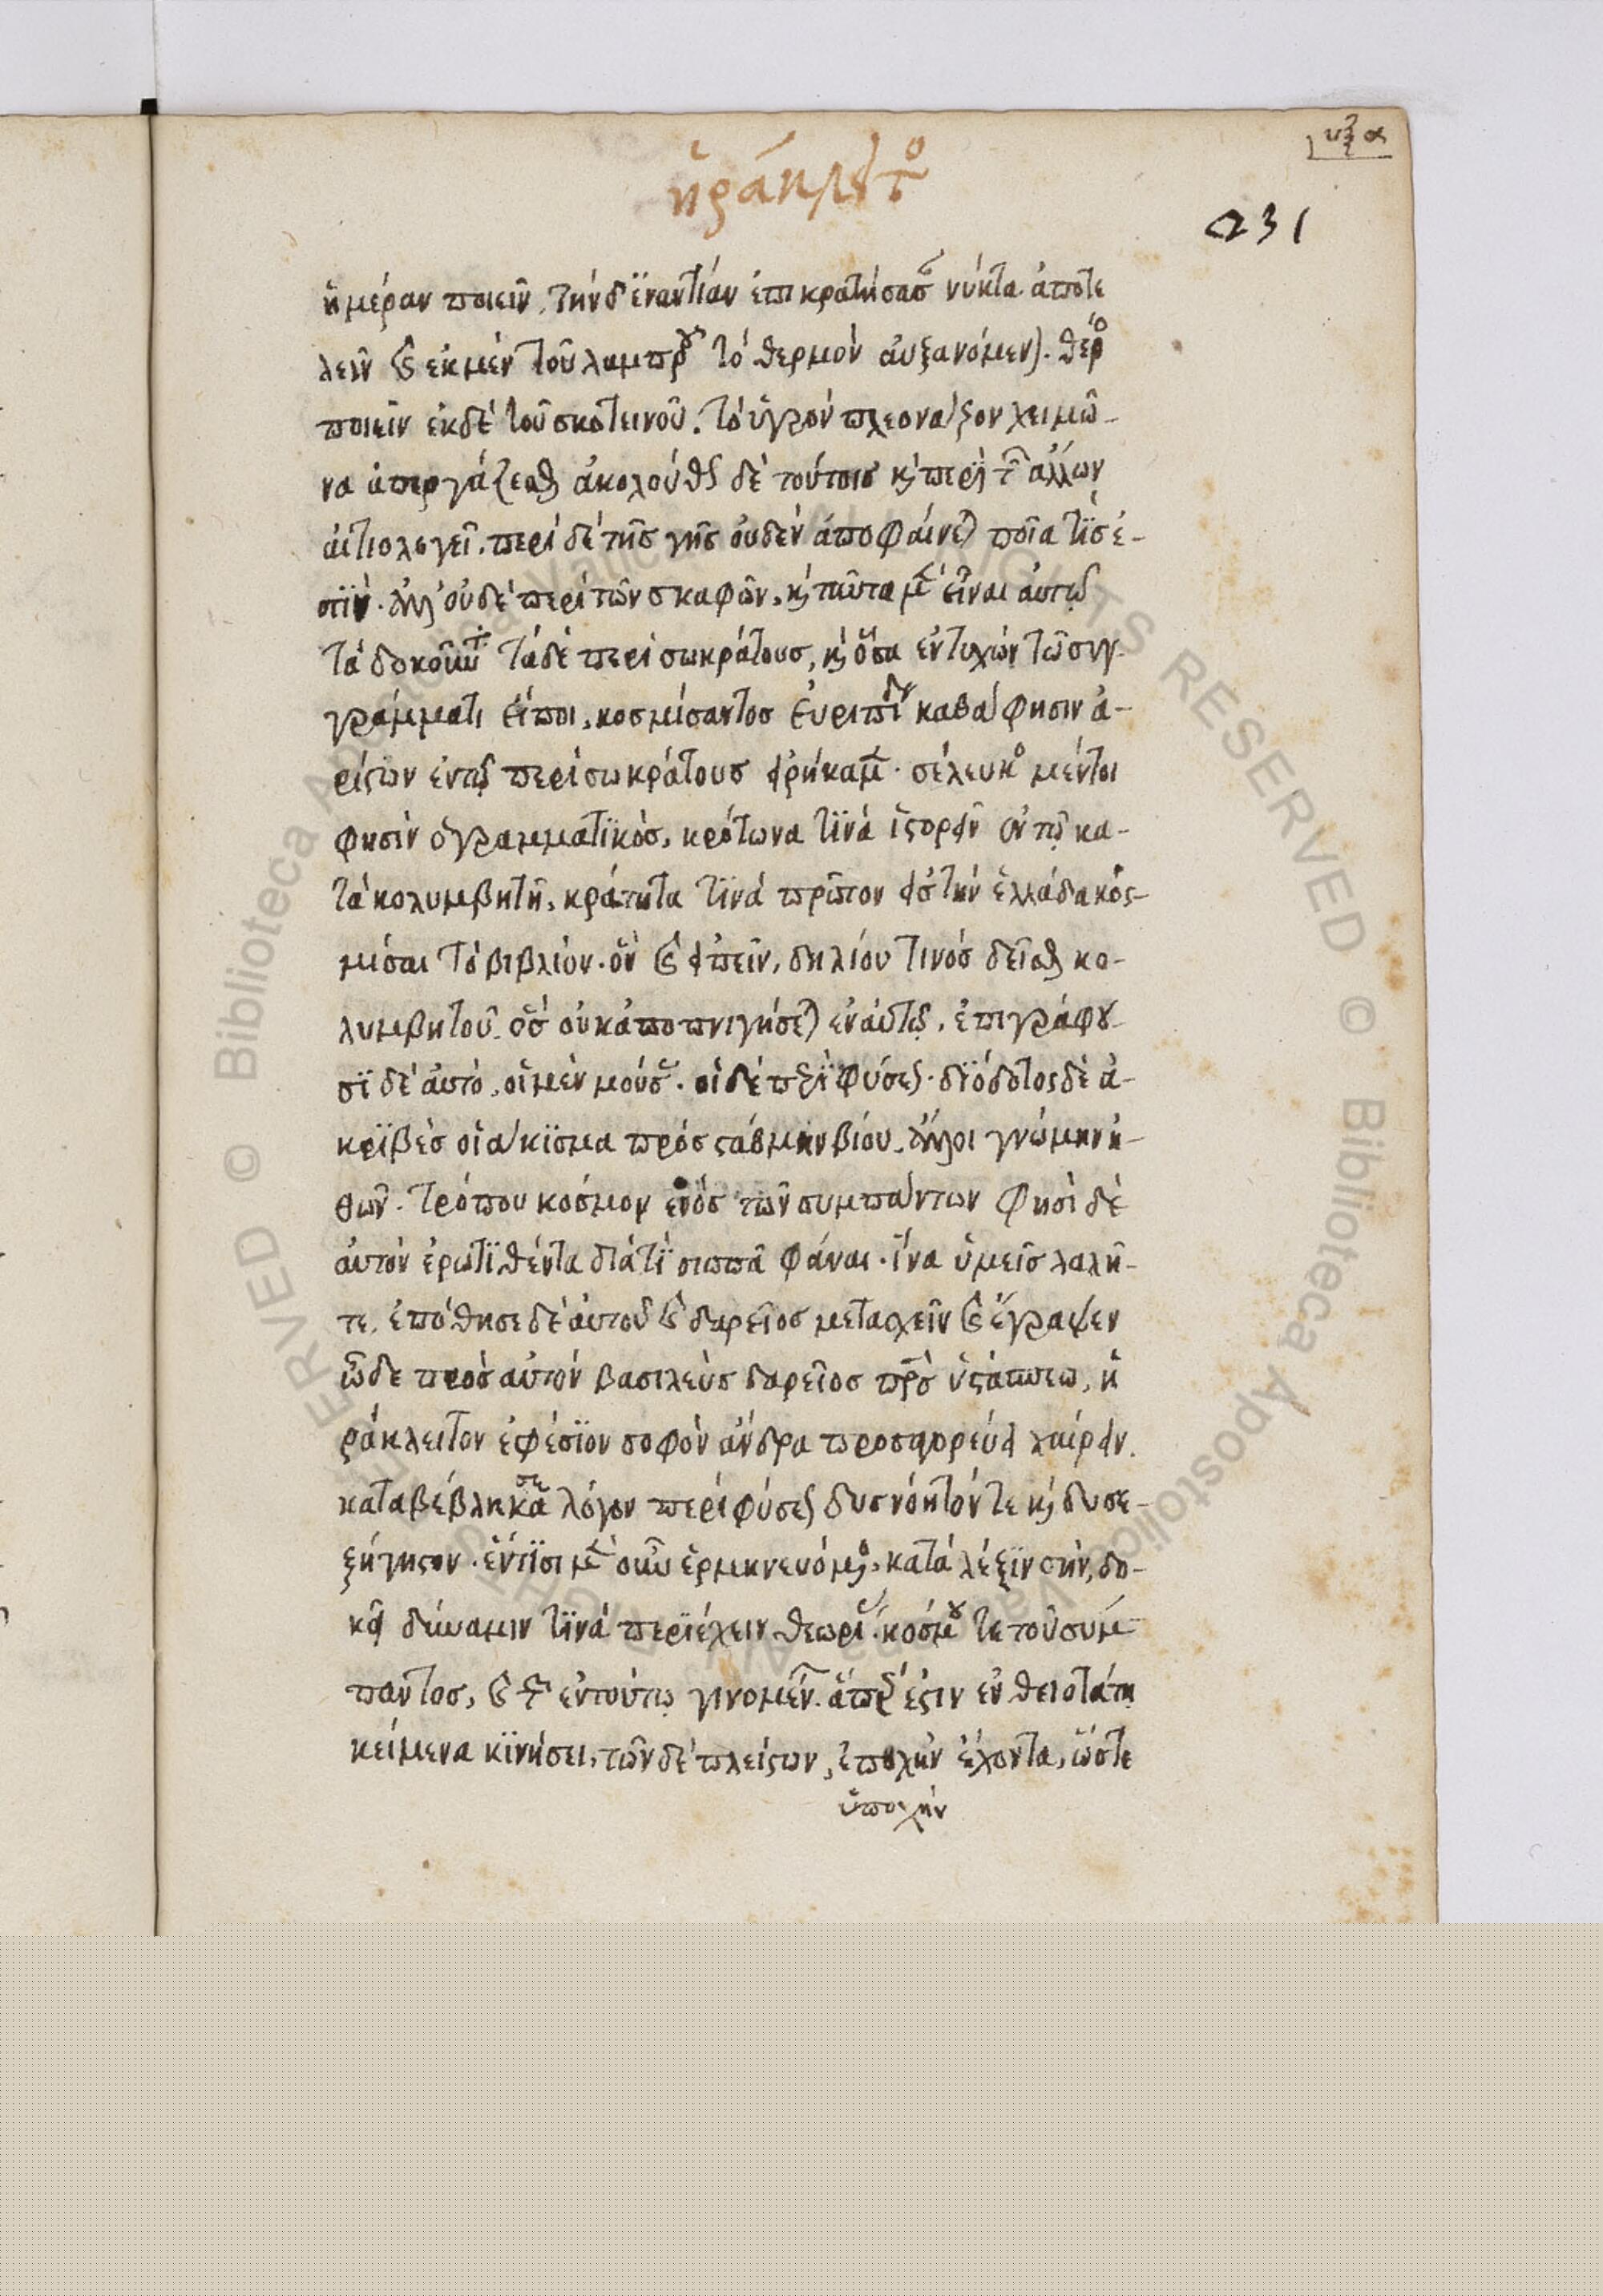 υξα
ἡράκλειτο
231
ἡμέραν ποιεῖν, τὴν δ' ἐναντίαν ἐπικρατήσασ νύκτα ἀποτε
λεῖν καὶ ἐκ μὲν τοῦ λαμπροῦ τὸ θερμὸν αὐξανόμενον. θέρο
ποιεῖν ἐκ δὲ τοῦ σκοτεινοῦ. τὸ ὑγρὸν πλεονάζον χειμῶ-
να ἀπεργάζεσθαι ἀκολούθως δὲ τούτοισ καὶ περὶ τῶν ἄλλων
αἰτιολογεῖ. περὶ δὲ τῆσ γῆσ οὐδὲν ἀποφαίνεται ποία τίσ ἐ-
στίν. ἀλλ' οὐδὲ περὶ τῶν σκαφῶν, καὶ ταῦτα μὲν εἶναι αὐτῷ
τὰ δοκοῦντα τὰ δὲ περὶ σωκράτουσ, καὶ ὅσα ἐντυχὼν τῶ συγ-
γράμματι εἴποι, κοσμίσαντοσ εὐριπίδου καθά φησιν ἀ-
ρίστων ἐν τῷ περὶ σωκράτουσ εἰρήκαμεν. σέλευκοσ μέντοι
φησὶν ὁ γραμματικὸσ, κρότωνα τινὰ ἱστορεῖν ἐν τῷ κα-
τακολυμβητῆ, κράτητα τινὰ πρῶτον εἰσ τὴν ἑλλάδα κοσ-
μίσαι τὸ βιβλίον. ὃν καὶ εἰπεῖν, δηλίου τινὸσ δεῖσθαι κο-
λυμβητοῦ. ὃσ οὐκ ἀποπνιγήσεται ἐν αὐτῷ. ἐπιγράφου-
σι δὲ αὐτὸ, οἱ μὲν μούσασ. οἱ δὲ περὶ φύσεωσ. διόδοτος δὲ ἀ-
κριβὲσ οἰάκισμα πρὸσ στάθμην βίου. ἄλλοι γνώμην ἠ-
θῶν. τρόπου κόσμον ἑνὸσ τῶν συμπάντων φησὶ δὲ
αὐτὸν ἐρωτιθέντα διατί σιωπᾶ φάναι. ἵνα ὑμεῖσ λαλῆ-
τε. ἐπόθησε δὲ αὐτοῦ καὶ δαρεῖοσ μετασχεῖν καὶ ἔγραψεν
ὧδε πρὸσ αὐτὸν βασιλεὺσ δαρεῖοσ πρσ ὑστάσπεω, ἡ
ράκλειτον ἐφέσιον σοφὸν ἄνδρα προσαγορεύει χαίρειν.
καταβέβληκασ λόγον περὶ φύσεωσ δυσνόητόν τε καὶ δυσε-
ξήγητον. ἔν τισι μὲν οὖν ἑρμηνευόμενοσ κατὰ λέξιν σὴν, δο-
κεῖ δύναμιν τινὰ περιέχειν θεωρίασ κόσμου τε τοῦ σύμ-
παντοσ, καὶ τῶν ἐν τούτῳ γινομένων. ἅπερ ἐστιν ἐν θειοτάτῃ
κείμενα κινήσει, τῶν δὲ πλείστων, ἐποχὴν ἔχοντα, ὥστε
ὑποχὴν